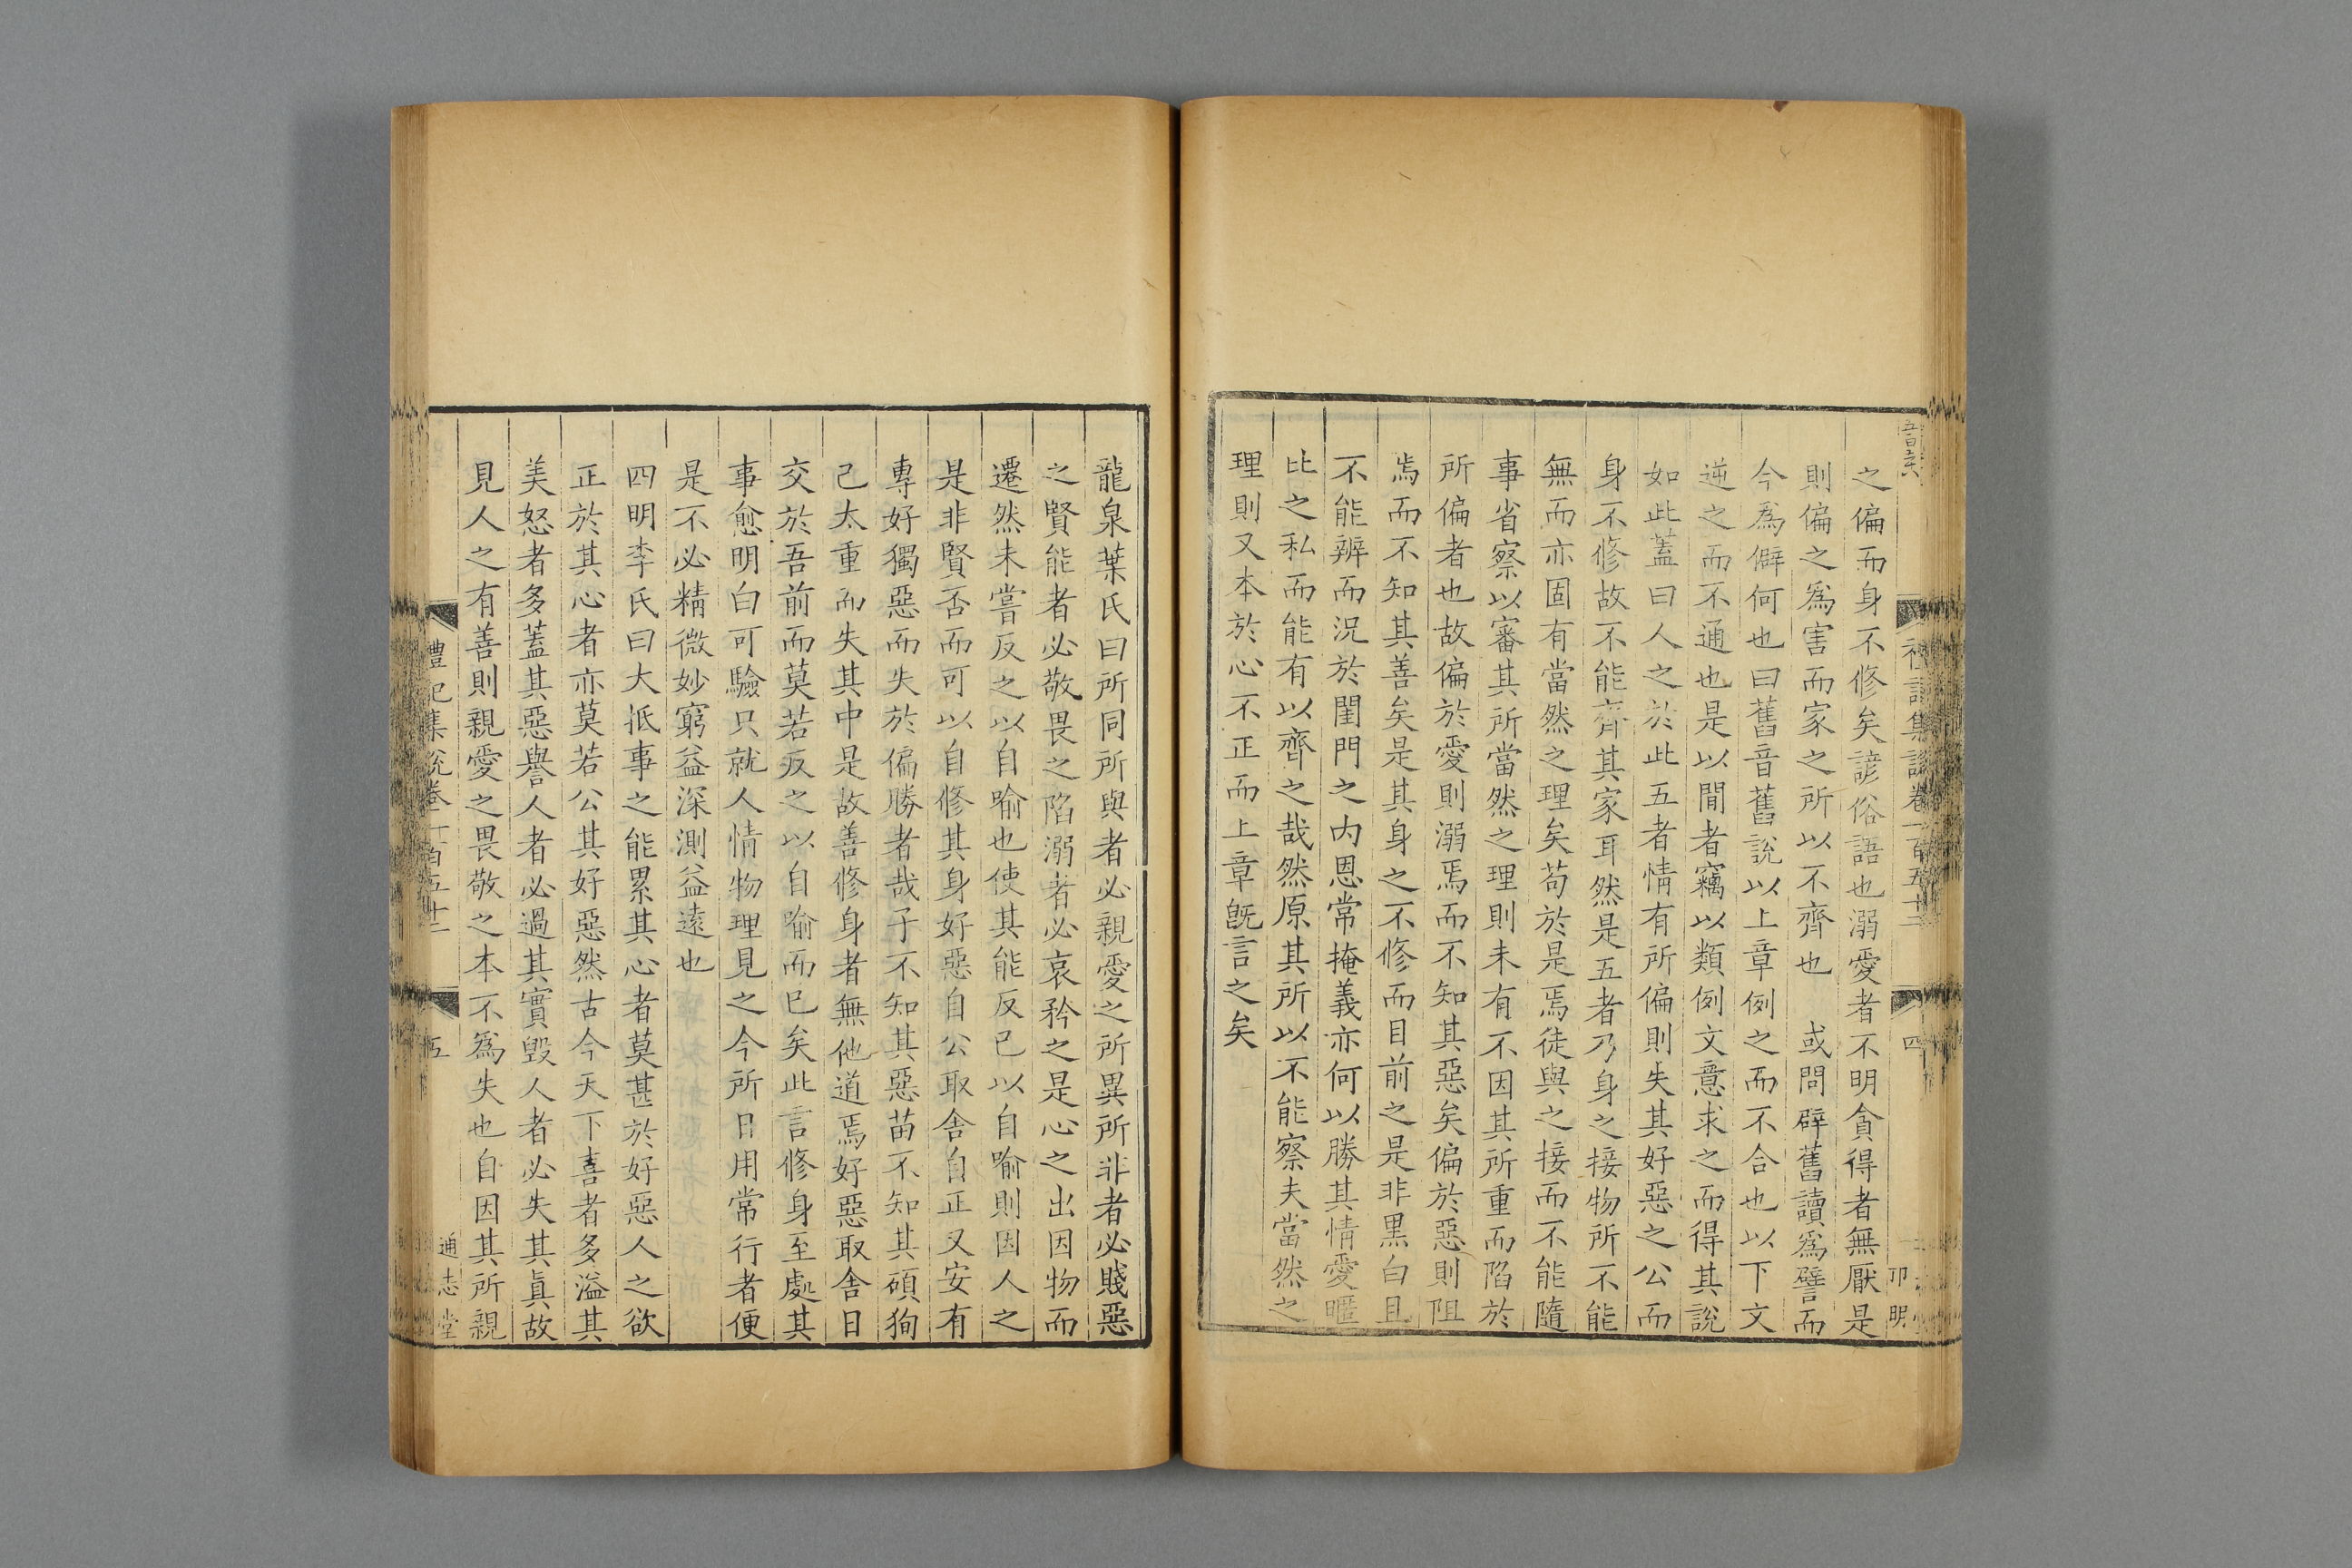 之偏而身不修矣諺俗語也溺愛者不明貪得者無厭是
則偏之爲害而家之所以不齊也　或問辟舊讀爲譬而
今爲僻何也曰舊音舊說以上章例之而不合也以下文
逆之而不通也是以閒者竊以類例文意求之而得其說
如此蓋曰人之於此五者情有所偏則失其好惡之公而
身不修故不能齊其家耳然是五者乃身之接物所不能
無而亦固有當然之理矣苟於是焉徒與之接而不能隨
事省察以審其所當然之理則未有不因其所重而陷於
所偏者也故偏於愛則溺焉而不知其惡矣偏於惡則阻
焉而不知其善矣是其身之不修而目前之是非黒白且
不能辨而況於閨門之内恩常掩義亦何以勝其情愛暱
比之私而能有以齊之哉然原其所以不能察夫當然之
理則又本於心不正而上章旣言之矣
龍泉葉氏曰所同所與者必親愛之所異所非者必賤惡
之賢能者必敬畏之陷溺者必哀矜之是心之出因物而
遷然未嘗反之以自喻也使其能反已以自喻則因人之
是非賢否而可以自修其身好惡自公取舍自正又安有
專好獨惡而失於偏勝者哉子不知其惡苗不知其碩狥
己太重而失其中是故善修身者無他道焉好惡取舍日
交於吾前而莫若反之以自喻而已矣此言修身至處其
事愈明白可驗只就人情物理見之今所日用常行者便
是不必精微妙窮益深測益遠也
四明李氏曰大抵事之能累其心者莫甚於好惡人之欲
正於其心者亦莫若公其好惡然古今天下喜者多溢其
美怒者多蓋其惡譽人者必過其實毀人者必失其眞故
見人之有善則親愛之畏敬之本不爲失也自因其所親
禮記集説卷一百五十二
五
通志堂